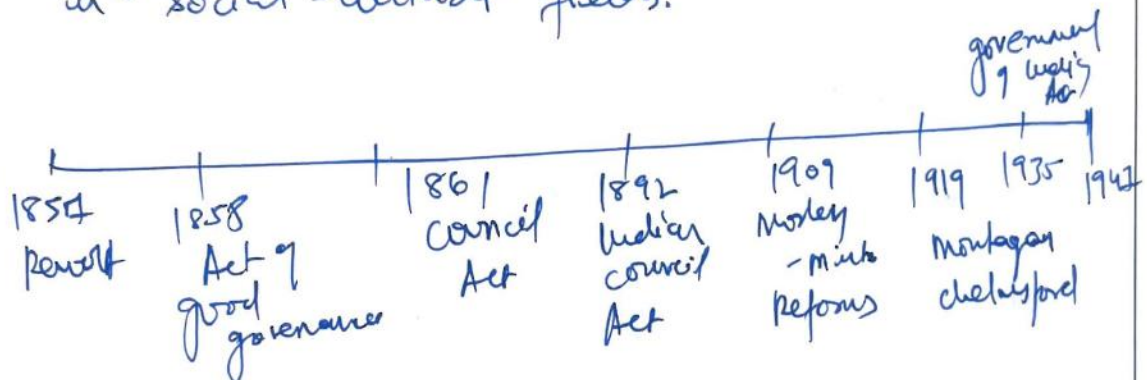 social
government
of India
Act
1857
Revolt
1858
Act of
good
governance
1861
Council
Act
1892
Indian
council
Act
1909
Morley
- Minto
Reforms
1919
Montagau
chelmsford
1935
1947